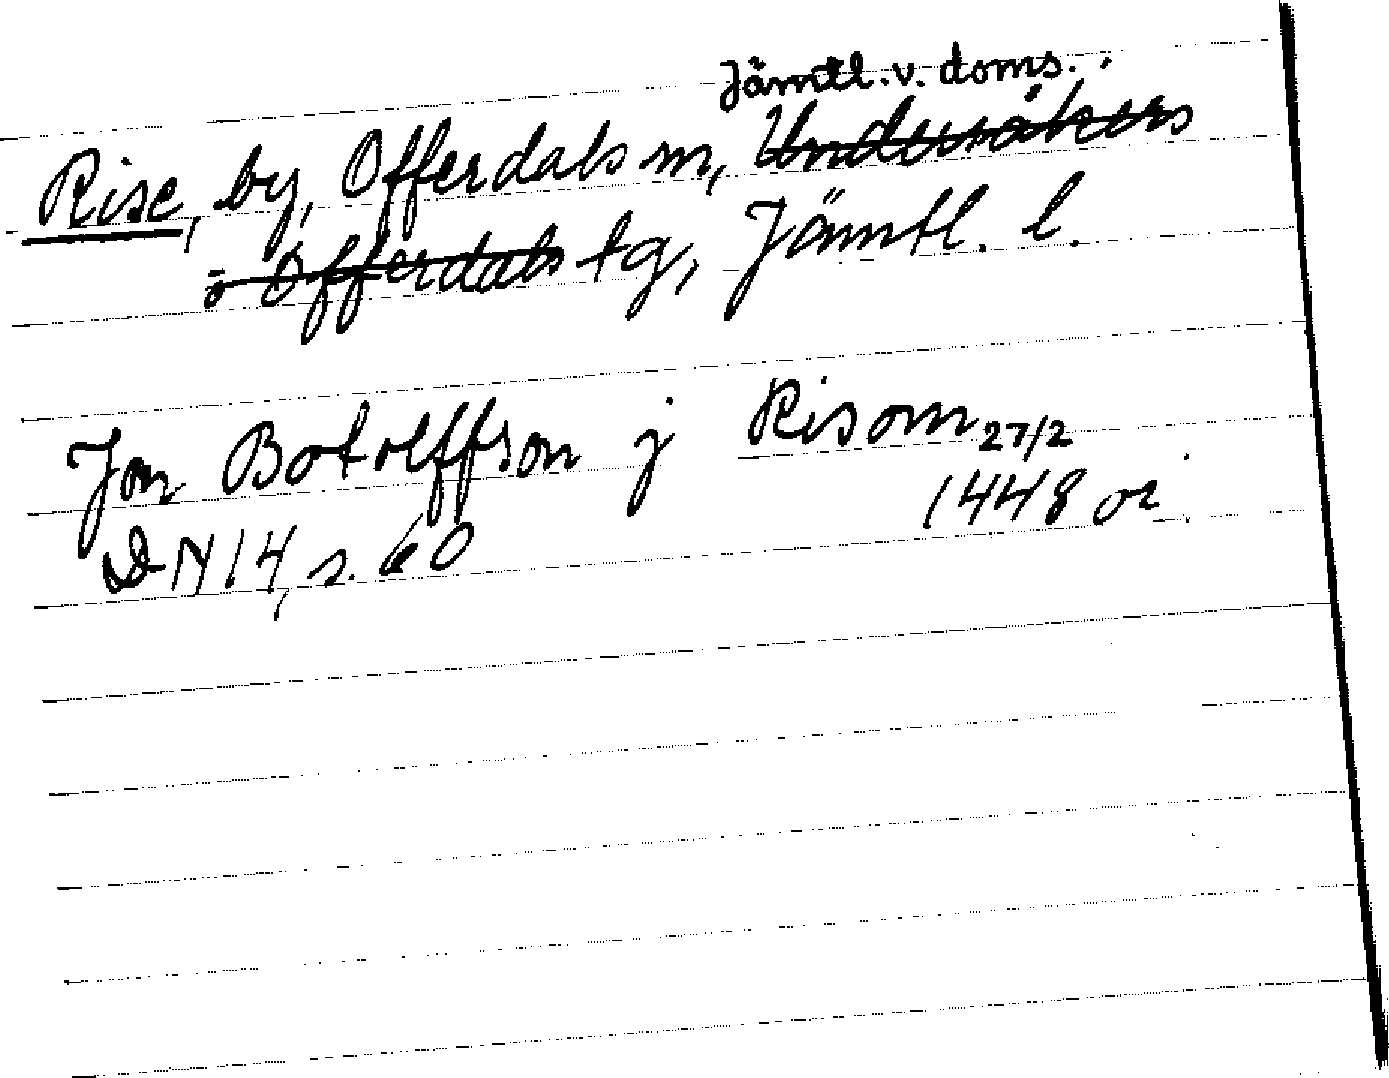 Jämtl. v. doms.
Rise, by, Offerdals sn, Undersåkers
o Offerdals tg, Jämtl. l.
Jon Botolffson j Risom 27/2
1448 or
DN 14, s. 60